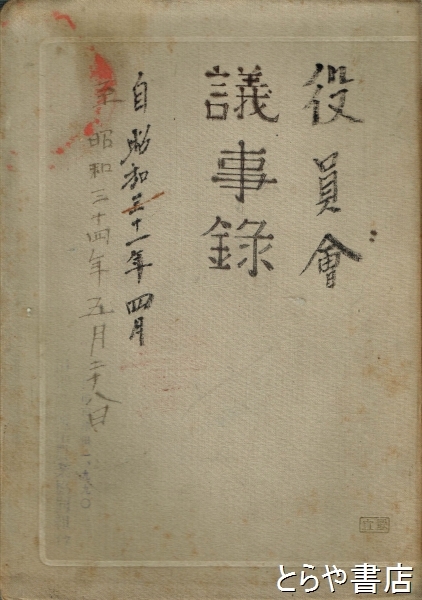 役員會
議事録
自昭和三十一年四月
至昭和三十四年五月二十八日
とらや書店